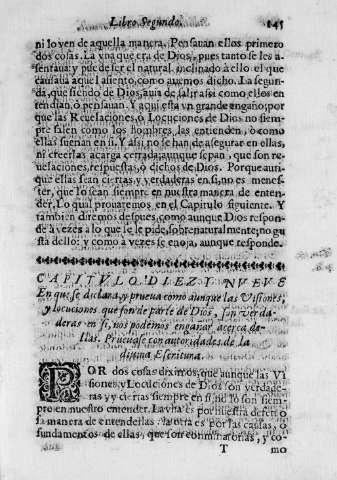 Libro Segundo. 145
ni lo ven de aquella manera. Pensauan ellos primero
dos cosas. La vna que era de Dios, pues tanto se les a-
sentaua y puede ser el natural inclinado à ello el que
causaua aquel asiento, como auemos dicho. La segun-
da, que siendo de Dios, auia de salir assi como ellos en-
tendian, ò pensauan. Y aqui esta vn grande engaño; por
que las Reuelaciones, ò Locuciones de Dios no siem-
pre salen como los hombres las entienden, ò como
ellas suenan en si. Y assi no se han de asegurar en ellas,
ni creerlas acarga cerrada; aunque sepan, que son re-
uelaciones, respuestas, ò dichos de Dios. Porque aun-
que ellas sean ciertas, y verdaderas en si, no es menes-
ter, que lo sean siempre en nuestra manera de enten-
der. Lo qual prouaremos en el Capitulo siguiente. Y
tambien diremos despues, como aunque Dios respon-
de à vezes a lo que se le pide, sobrenaturalmente; no gu
sta dello: y como a vezes se enoja, aunque responde.
CAPITVLO DIEZ Y NVEVE
En que se declara, y prueua como aunque las Visiones,
y locuciones que son de parte de Dios, son verda-
deras en si, nos podemos engañar acerca de-
llas. Prueuase con autoridades de la
diuina Escritura.
POR dos cosas diximos, que aunque las Vi
siones, y Locuciones de Dios son verdade-
ras y y ciertas siempre en si, no lo son siem-
pre en nuestro entender. La vna es por nuestra defectuo
sa manera de entenderlas. la otra es por las causas, ò
fundamentos de ellas, que son conminatorias, y co-
T mo